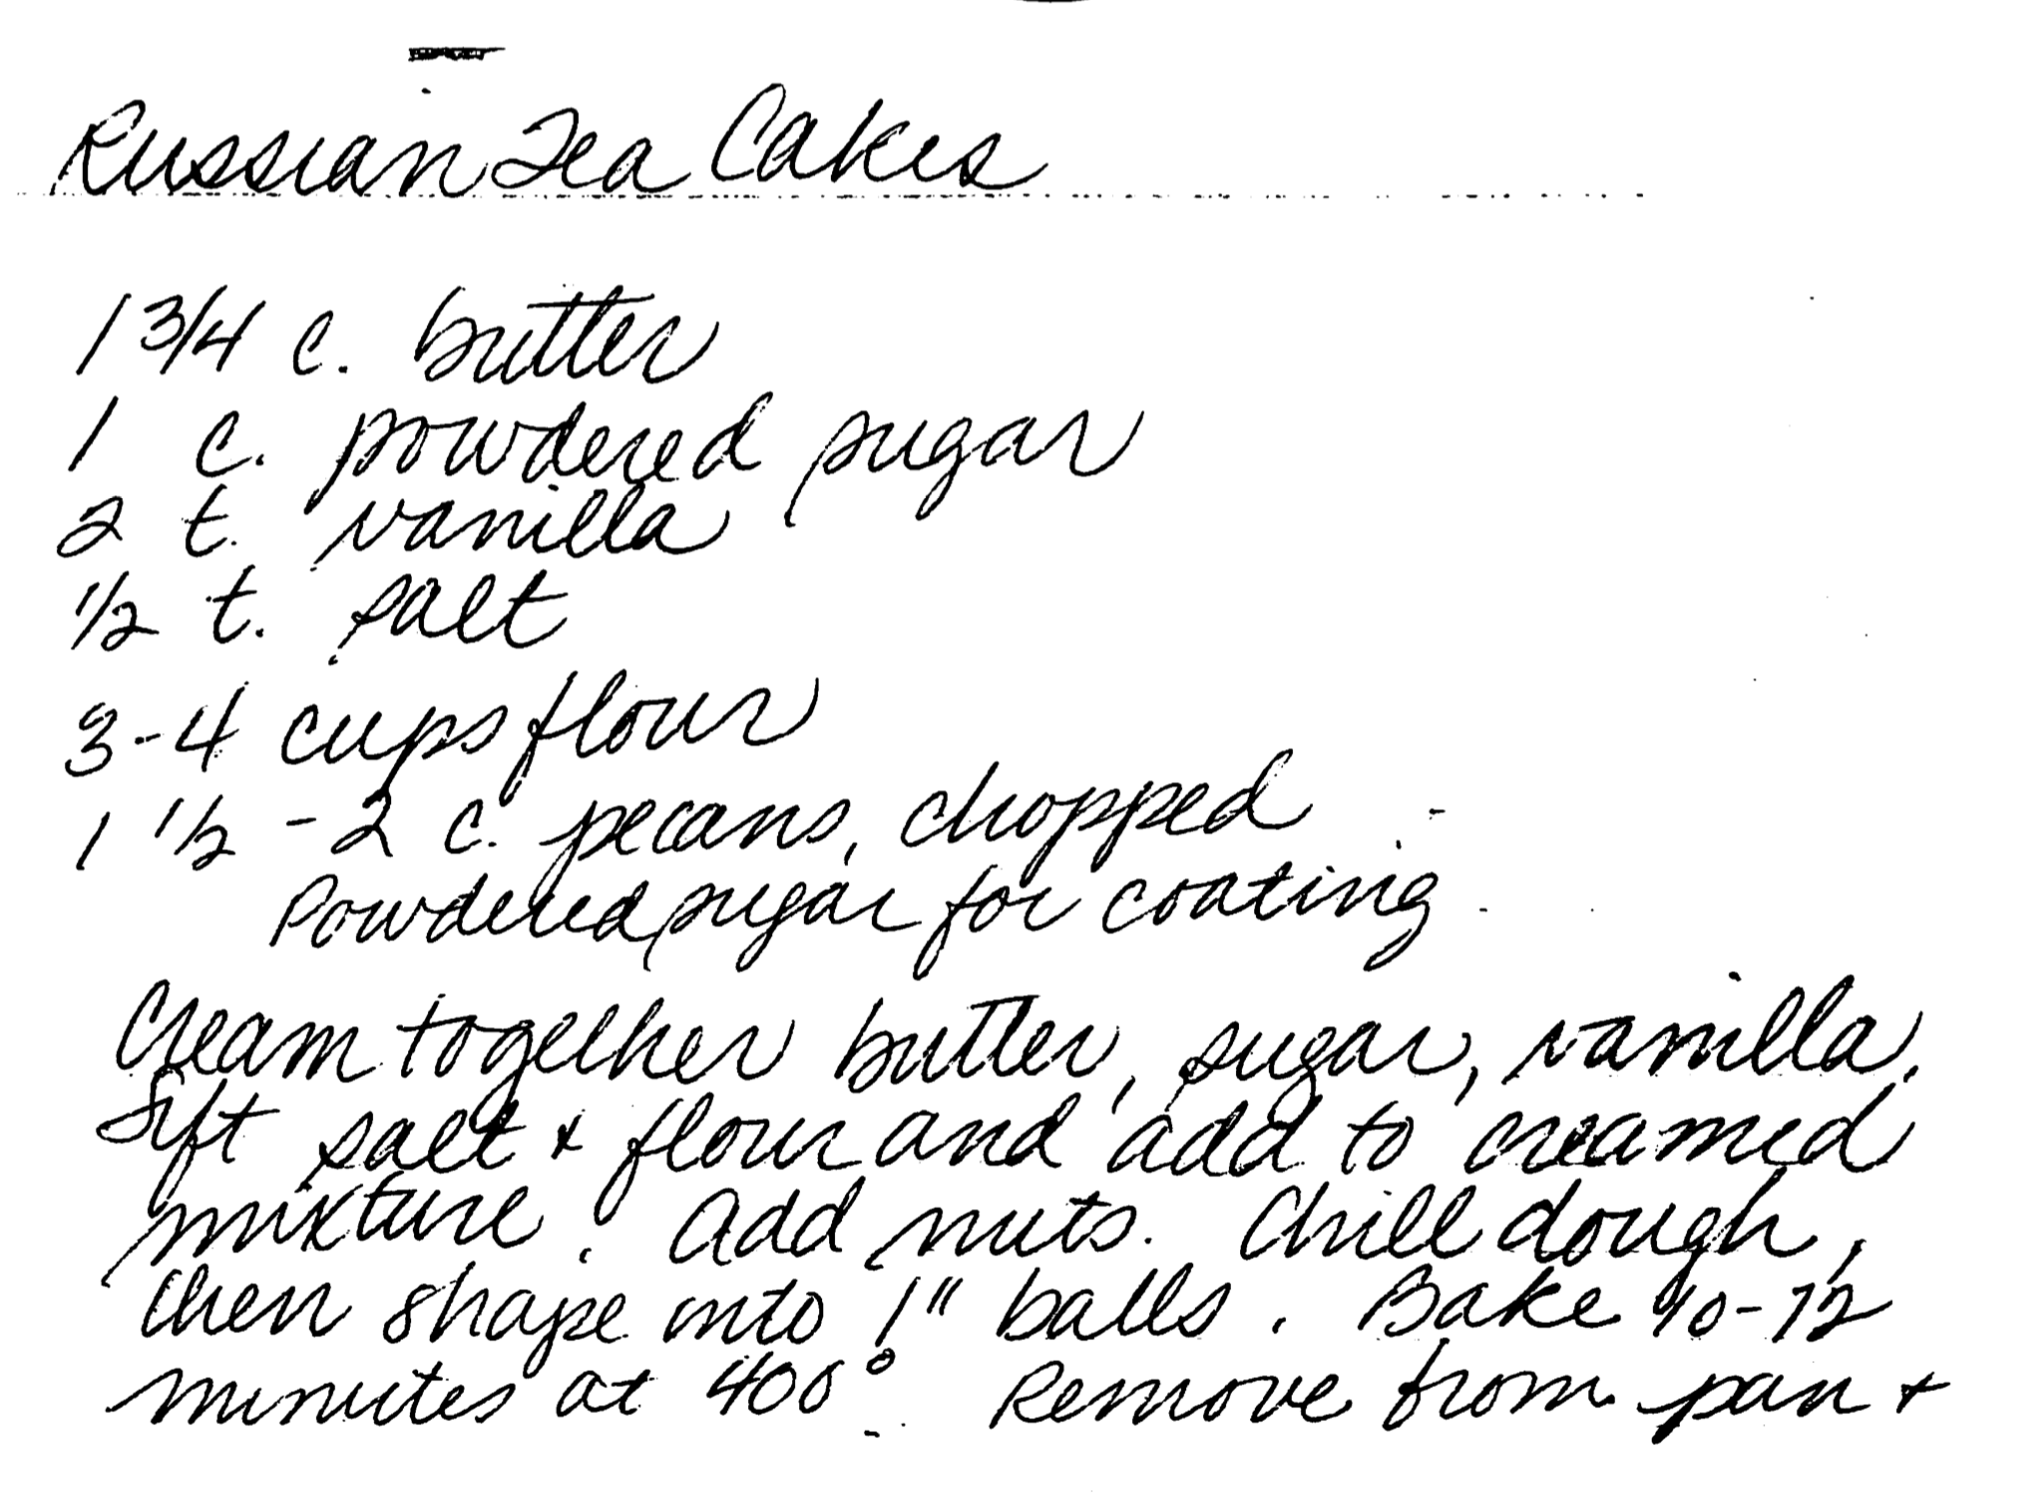 Russian Tea Cakes
1 3/4 c. butter
1 c. powdered sugar
2 t. vanilla
1/2 t. salt
3-4 cups flour
1 1/2 - 2 c. pecans, chopped
Powdered sugar for coating
Cream together butter, sugar, vanilla.
Sift salt + flour and add to creamed
mixture. Add nuts. Chill dough,
then shape into 1" balls. Bake 10-12
minutes at 400°. Remove from pan +